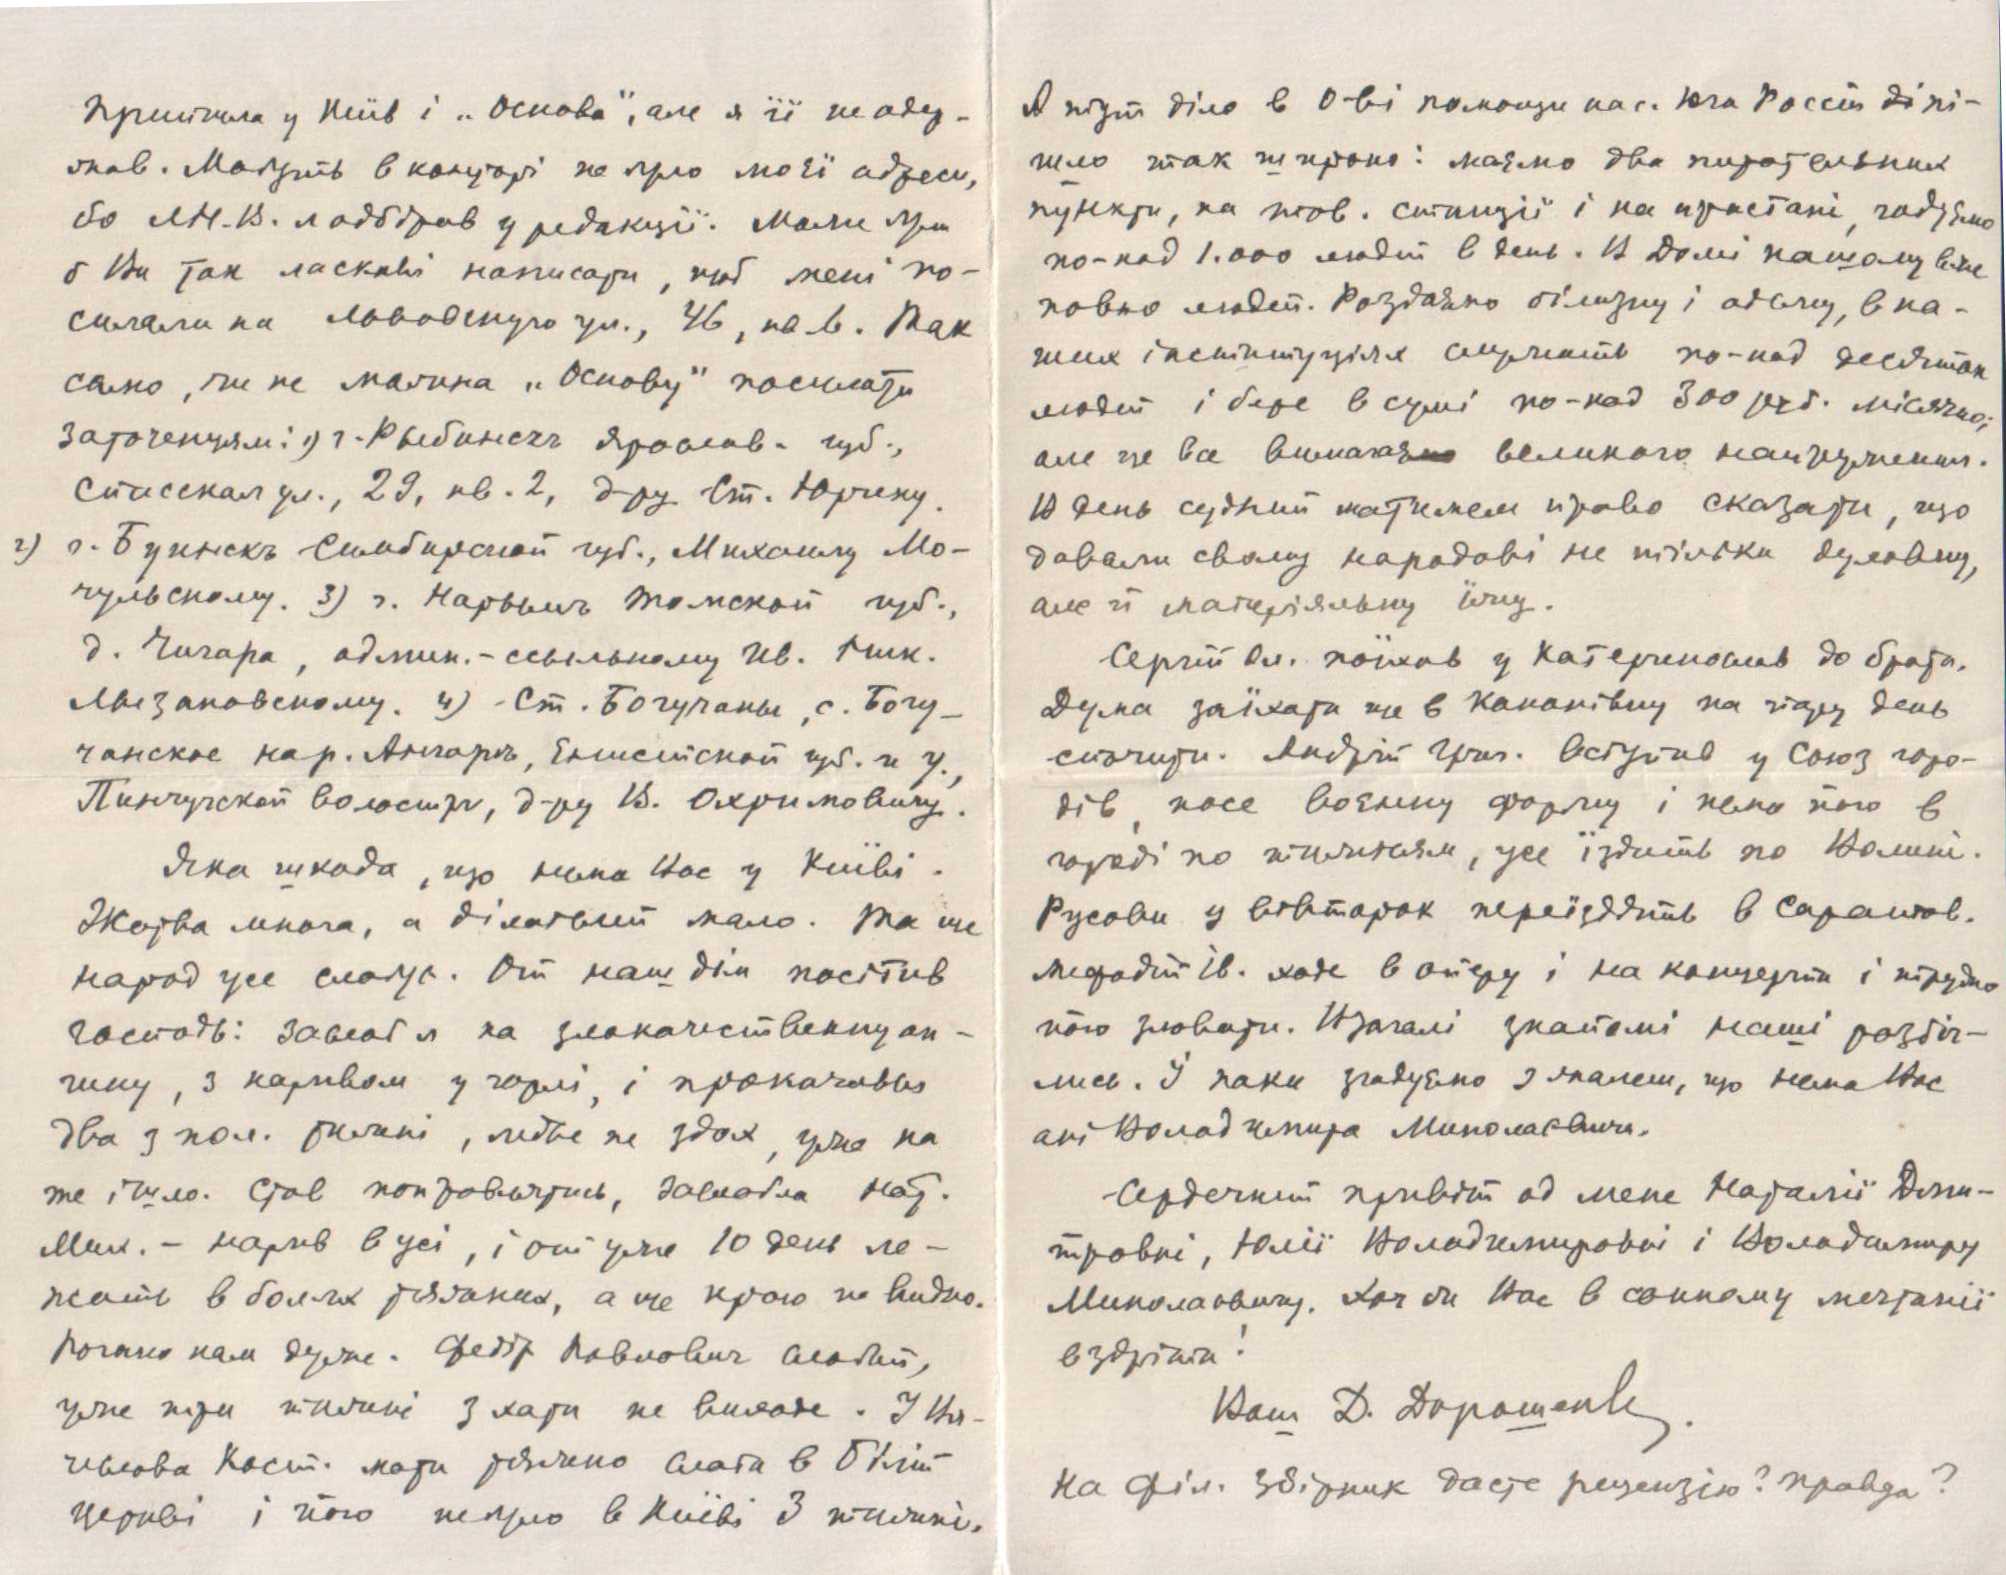 Прийшла у Київ і „Основа", але я її не одер-
жав. Мабуть в конторі не було моєї адреси,
бо Л.М.-В. підбірав у редакції. Може були
б Ви так ласкаві написати, щоб мені по-
силали на Львовскую ул., 46, кв. 6. Так
само, чи не можна „Основу" посилати
заточенцям: 1) г. Рыбинскъ Яросл. губ.,
Спасская ул., 29, кв. 2, д-ру Ст. Юрику.
2) г. Буинскъ Симбирской губ., Михаилу Мо-
чульскому. 3) г. Нарымъ Томской губ.,
д. Чигара, админ.-ссыльному Ив. Ник.
Лызановскому. 4) Ст. Богучаны, с. Богу-
чанское на р. Ангарѣ, Енисейской губ. и у.,
Пинчугской волости, д-ру В. Охримовичу.
Яка шкода, що нема Вас у Київі.
Жатва многа, а ділатьлей мало. Та ще
народ усе слабує. От наш дім посітив
господь: заслаб я на злокачественну ан-
гину, з наривом у горлі, і прокачавшись
два з пол. тижні, ледве не здох, уже на
те ішло. Став поправлятись, заслабла Нат.
Мих. – нарив в усі, і от уже 10 день ле-
жить в болях тяжких, а ще краю не видно.
Погано нам дуже. Федір Павлович слабий,
уже три тижні з хати не виходе. У Вя-
чеслава Кост. мати тяжко слаба в Білій
Церкві і його не було в Київі 3 тижні.
А тут діло в О-ві помощи нас. Юга Россіи ді пі-
шло так широко: маємо два питательних
пункти, на тов. станції і на пристані, годуємо
по-над 1.000 людей в день. В Домі нашому вже
повно людей. Роздаємо білизну і одежу, в на-
ших інституціях служить по-над десяток
людей і бере в сумі по-над 300 руб. місячно;
але це все вимагає великого напруження.
В день судний матимем право сказати, що
давали свому народові не тільки духовну,
але й матеріяльну їжу.
Сергій Ол. поїхав у Катеринослав до брата.
Дума заїхати ще в Кононівку на пару день
спочити. Андрій Іван. вступив у Союз горо-
дів, носе воєнну форму і нема його в
городі по тижням, усе їздить по Волині.
Русови у вівторок переїздять в Саратов.
Мефодій Ів. ходе в оперу і на концерти і трудно
його зловити. Взагалі знайомі наші розбіг-
лись. І паки згадуємо з жалем, що нема Вас
ані Володимира Миколаєвича.
Сердечний привіт од мене Наталії Дми-
тровні, Юлії Володимировні і Володимиру
Миколаєвичу. Хоч би Вас в сонному мечтанії
вздріти!
Ваш Д. Дорошенко.
На Філ. Збірник даєте рецензію? Правда?